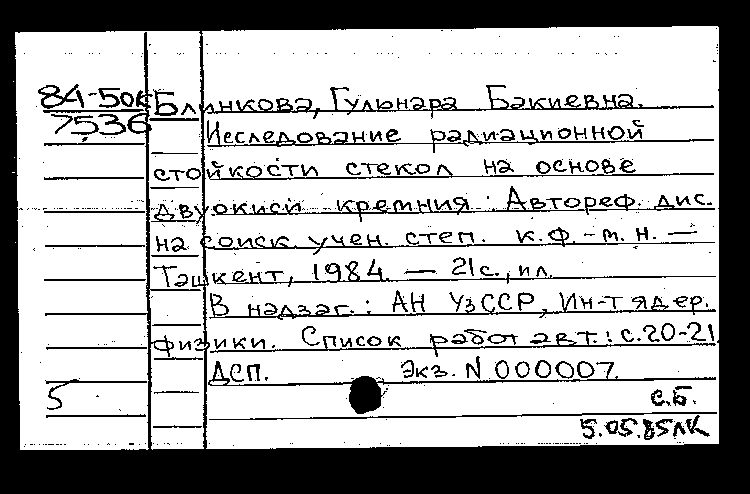 84-50к Блинкова, Гульнара Бакиевна.
7536 Исследование радиационной
стойкости стекол на основе
двуокиси кремния : Автореф. дис.
на соиск. учен. степ. к.ф.-м.н. —
Ташкент, 1984. — 21с., ил.
В надзаг.: АН УзССР, Ин-т ядер.
физики. Список работ авт.: с.20-21.
ДСП. Экз. N 000007.
5 с.Б.
5.05.85лк